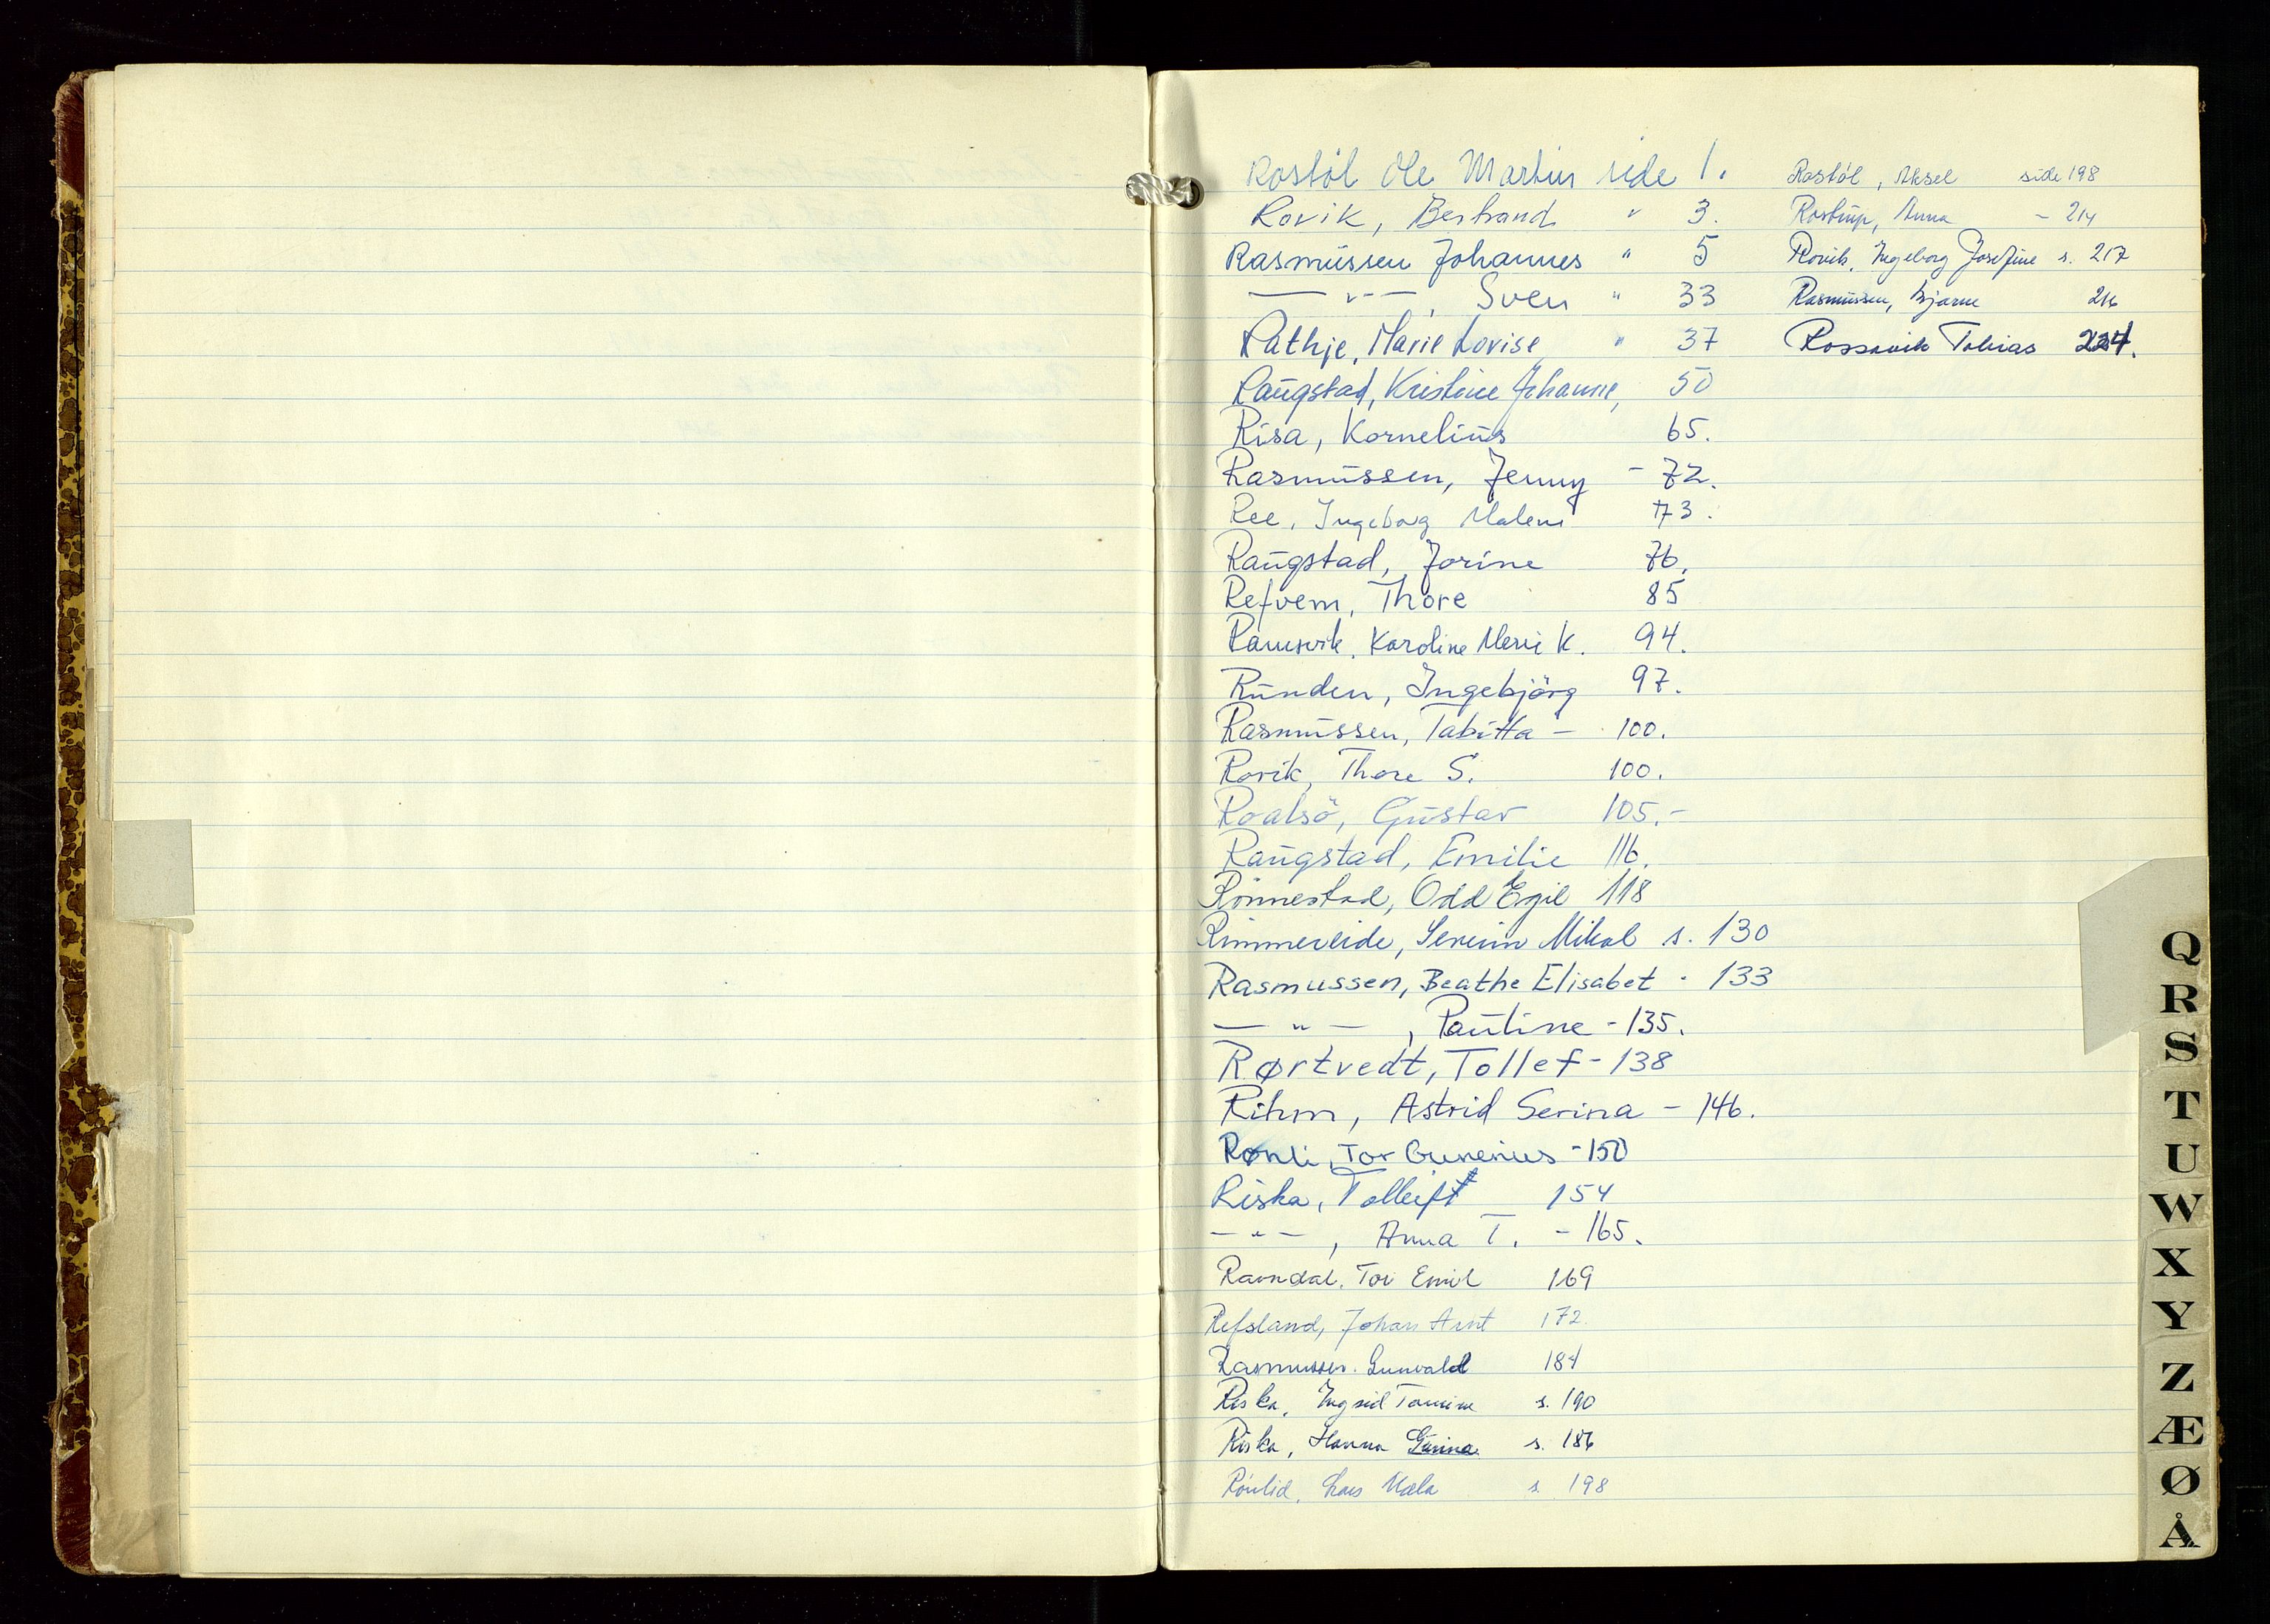 Rostöl Ole Martin side 1.
Rovik, Bertrand " 3.
Rasmussen Johannes " 5
— " —, Sven " 33
Rathje, Marie Lovise " 37
Raugstad, Kristine Johanne, 50
Risa, Kornelius 65.
Rasmussen, Jenny - 72.
Ree, Ingeborg Malene 73.
Raugstad, Jorine 76.
Refvem, Thore 85
Ramsvik, Karoline Marie K. 94.
Runden, Ingebjörg 97.
Rasmussen, Tabitta - 100.
Rovik, Thore S. 100.
Roalsö, Gustav 105.-
Raugstad, Emilie 116.
Rönnestad, Odd Egil 118
Rimmereide, Serein Mikal s. 130
Rasmussen, Beathe Elisabet - 133
— " — , Pauline - 135.
Rørtvedt, Tollef - 138
Rihm, Astrid Serina - 146.
Rønli, Tor Gunerius - 150
Riska, Tolleif 154
— " — , Anna T. - 165.
Ravndal, Tor Emil 169
Refsland, Johan Arnt 172.
Rasmussen. Gunvald 184
Riska, Ingrid Tomine s. 190
Riska, Hanna Gurina s. 186
Rönlid, Lars Mala s 198
Rostöl, Aksel side 198
Rostrup, Anna - 214
Rovik, Ingeborg Josefine s. 217
Rasmussen, Bjarne 216
Rossavik Tobias 224.
Q
R
S
T
U
W
X
Y
Z
Æ
Ø
Å